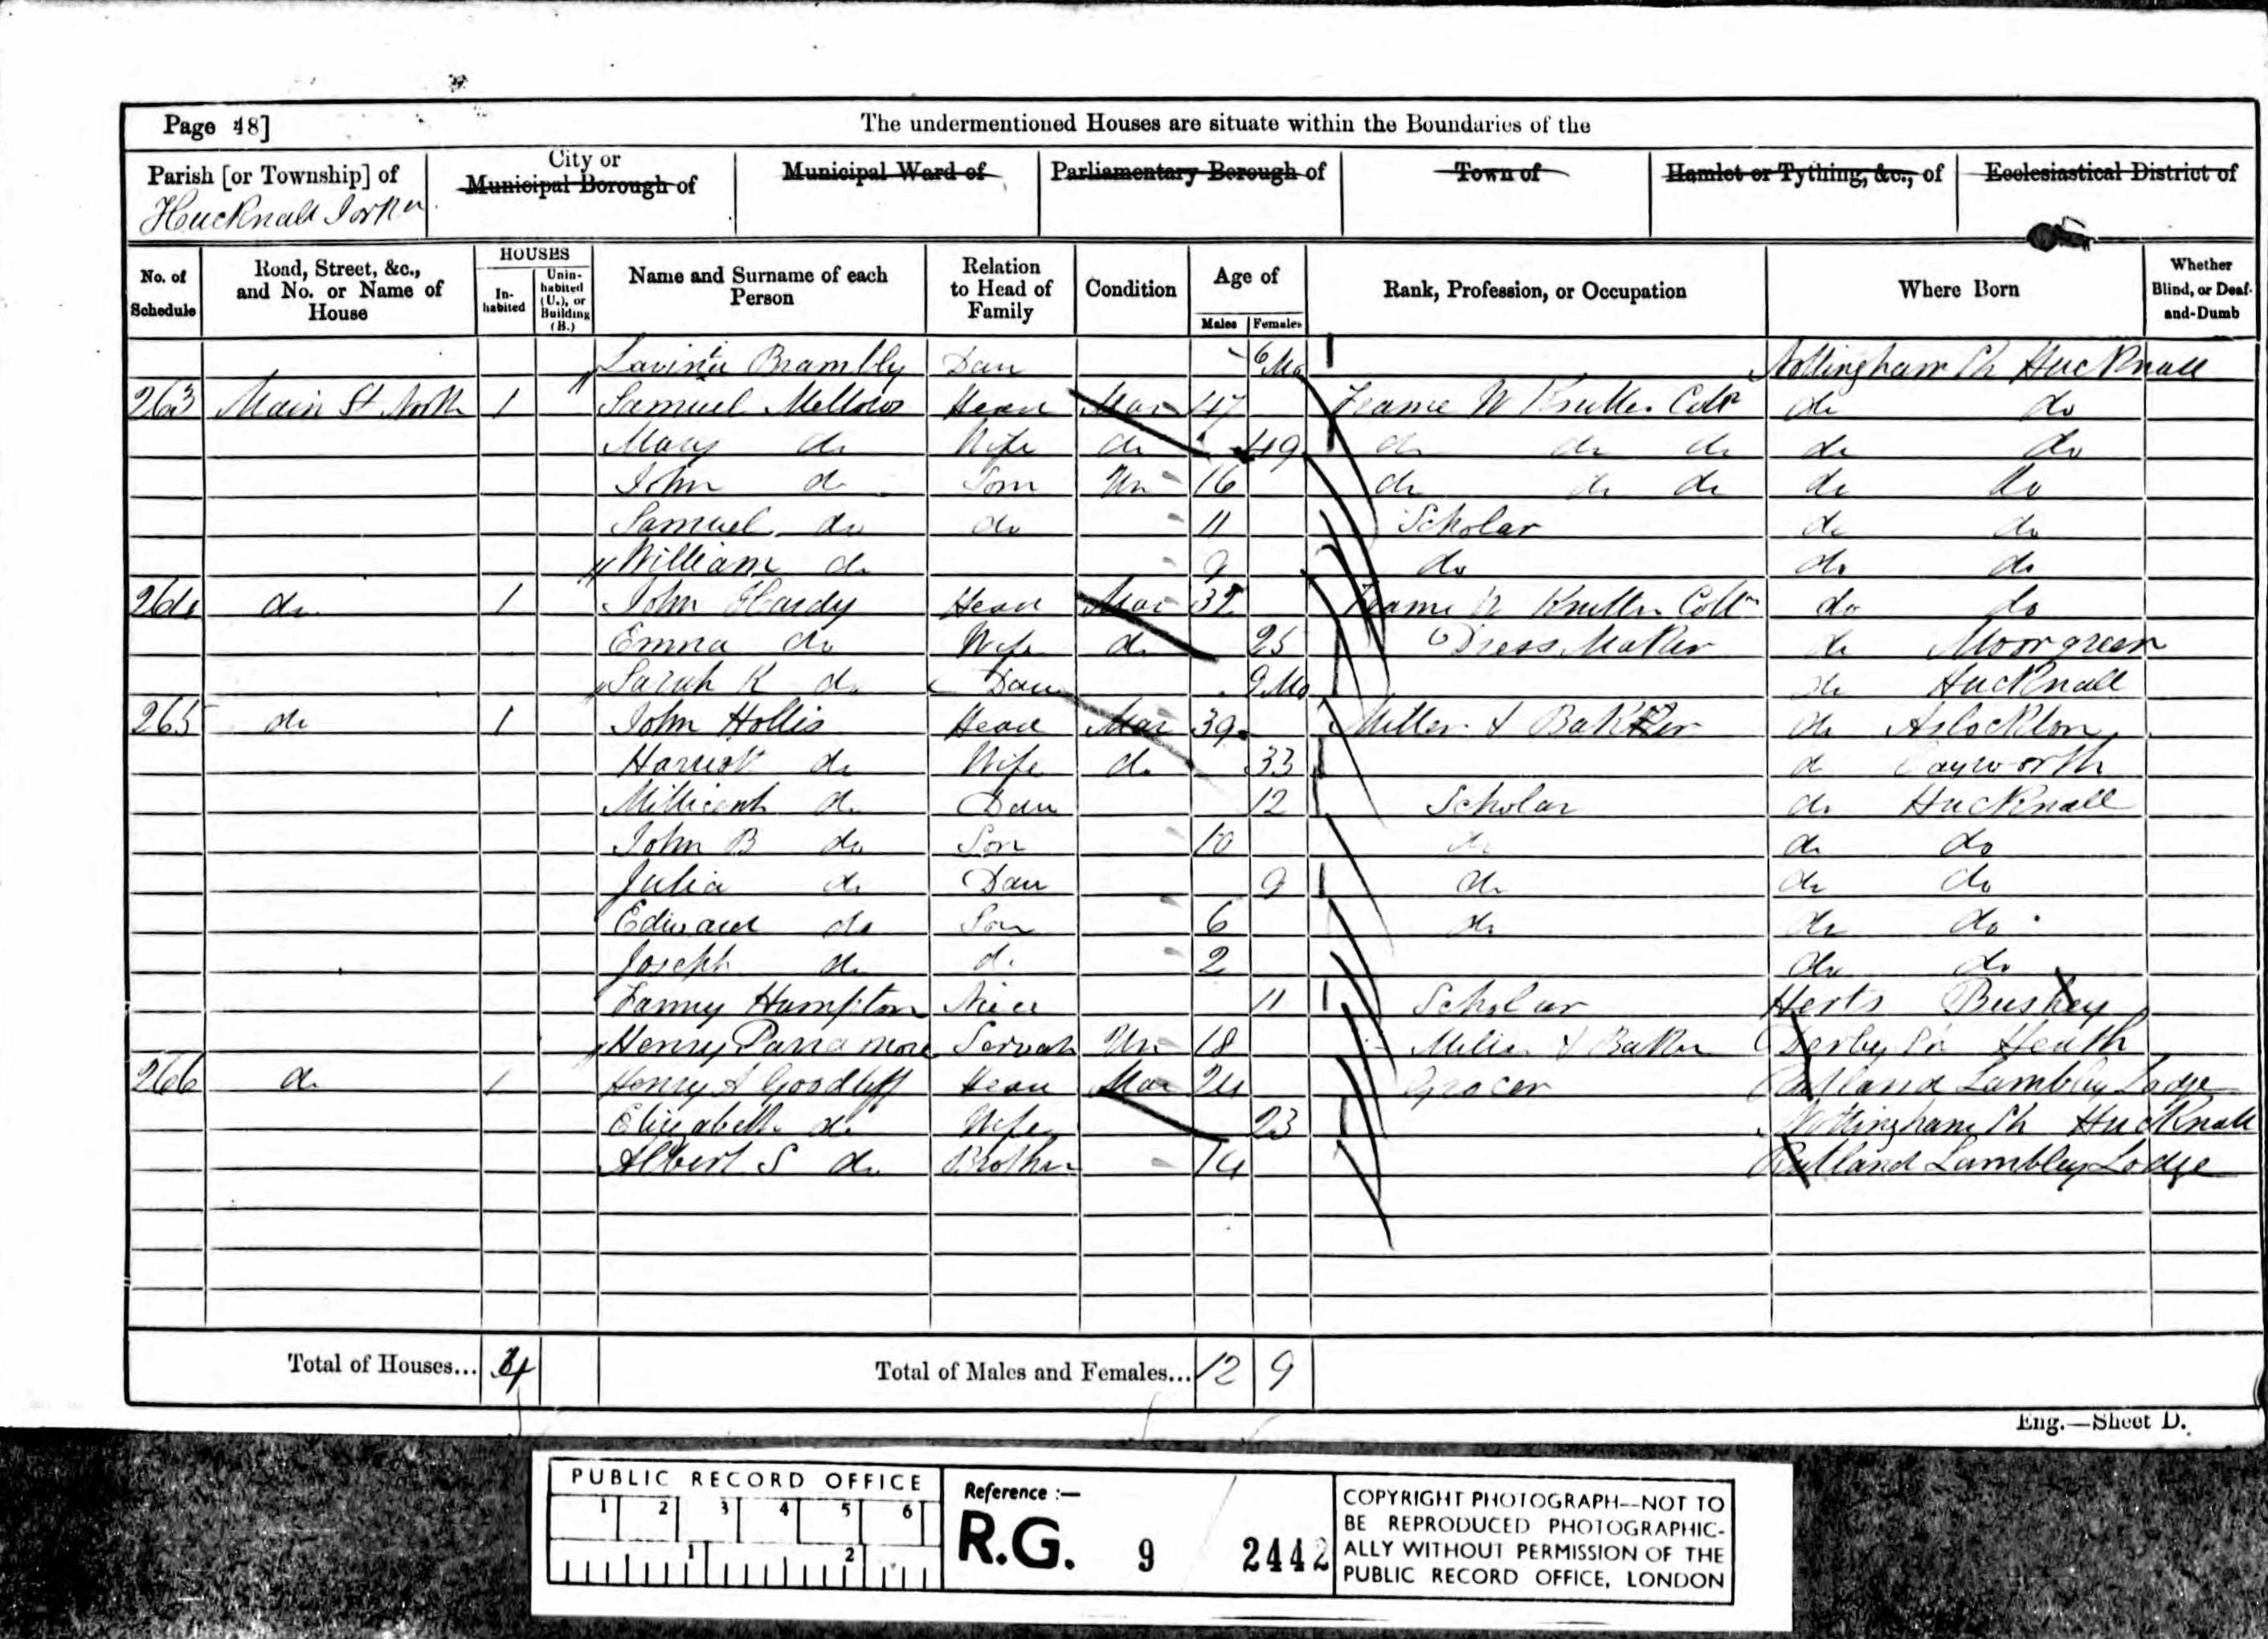 Page 48]
The undermentioned Houses are situate within the Boundaries of the
Parish [or Township] of
Hucknall Torkd
City or Municipal Borough of
Municipal Ward of
Parliamentary Borough of
Town of
Hamlet or Tything, &c., of
Ecclesiastical District of
No. of Schedule
Road, Street, &c., and No. or Name of House
HOUSES
In-habited
Unin-habited (U.), or Building (B.)
Name and Surname of each Person
Relation to Head of Family
Condition
Age of
Males
Females
Rank, Profession, or Occupation
Where Born
Whether Blind, or Deaf-and-Dumb
Lavinia Brambly Dau 6 Mo Nottingham Sh Hucknall
263 Main St North 1 Samuel Mellows Head Mar 47 Frame W Knitter Cotn do do
Mary do Wife do 49 do do do do do
John do Son Un 16 do do do do do
Samuel do do 11 Scholar do do
William do 9 do do do
264 do 1 John Hardy Head Mar 32 Frame W Knitter Cottn do do
Emma do Wife do 25 Dress Maker do Moorgreen
Sarah K do Dau 9 Mo do Hucknall
265 do 1 John Hollis Head Mar 39 Miller & Baker do Aslockton
Harriott do Wife do 33 do
Millicent do Dau 12 Scholar do Hucknall
John B do Son 10 do do do
Julia do Dau 9 do do do
Edward do Son 6 do do do
Joseph do do 2 do do
Fanny Hampton Niece 11 Scholar Herts Bushey
Henry Parramore Servant Un 18 Miller & Baker Derby Sh Heath
266 do 1 Henry A Goodliff Head Mar 24 Grocer Rutland Lambley Lodge
Elizabeth do Wife 23 Nottingham Sh Hucknall
Albert S do Brother 14 Rutland Lambley Lodge
Total of Houses... 4
Total of Males and Females... 12 9
Eng.—Sheet D.
PUBLIC RECORD OFFICE
1 2 3 4 5 6
1 2
Reference :—
R.G. 9 / 2442
COPYRIGHT PHOTOGRAPH—NOT TO
BE REPRODUCED PHOTOGRAPHIC-
ALLY WITHOUT PERMISSION OF THE
PUBLIC RECORD OFFICE, LONDON